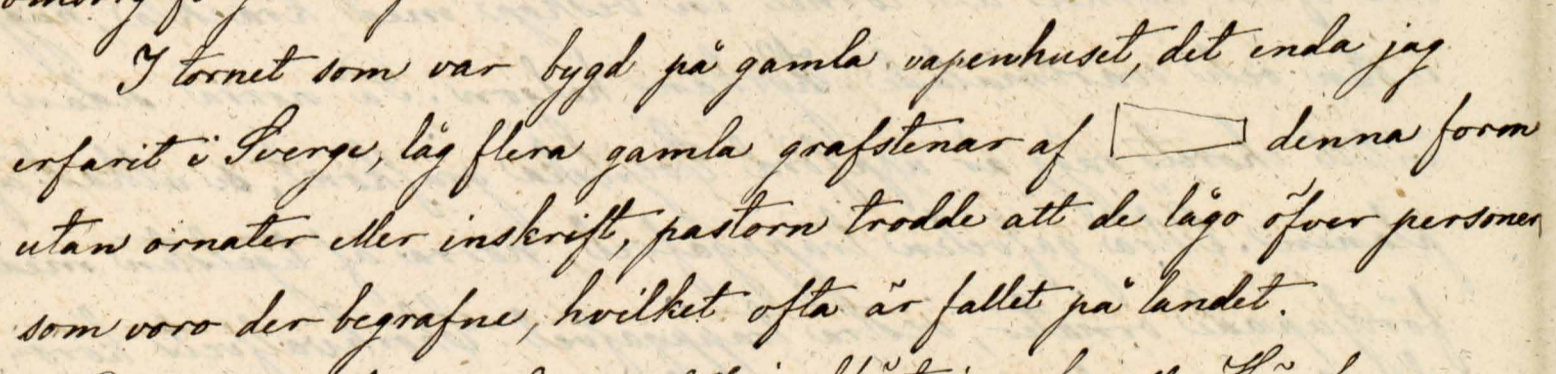 I tornet som var bygd på gamla vapenhuset, det enda jag
erfarit i Sverge, låg flera gamla grafstenar af denna form
utan ornater eller inskrift, pastorn trodde att de lågo öfver personer
som voro der begrafne, hvilket ofta är fallet på landet.